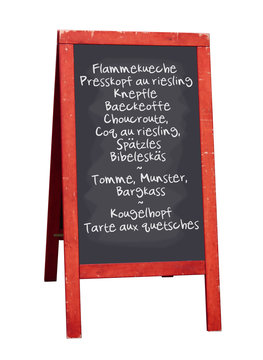 Flammekueche
Presskopf au riesling
Knepfle
Baeckeoffe
Choucroute,
Coq au riesling,
Spätzles
Bibeleskäs
~
Tomme, Munster,
Bargkass
~
Kougelhopf
Tarte aux quetsches